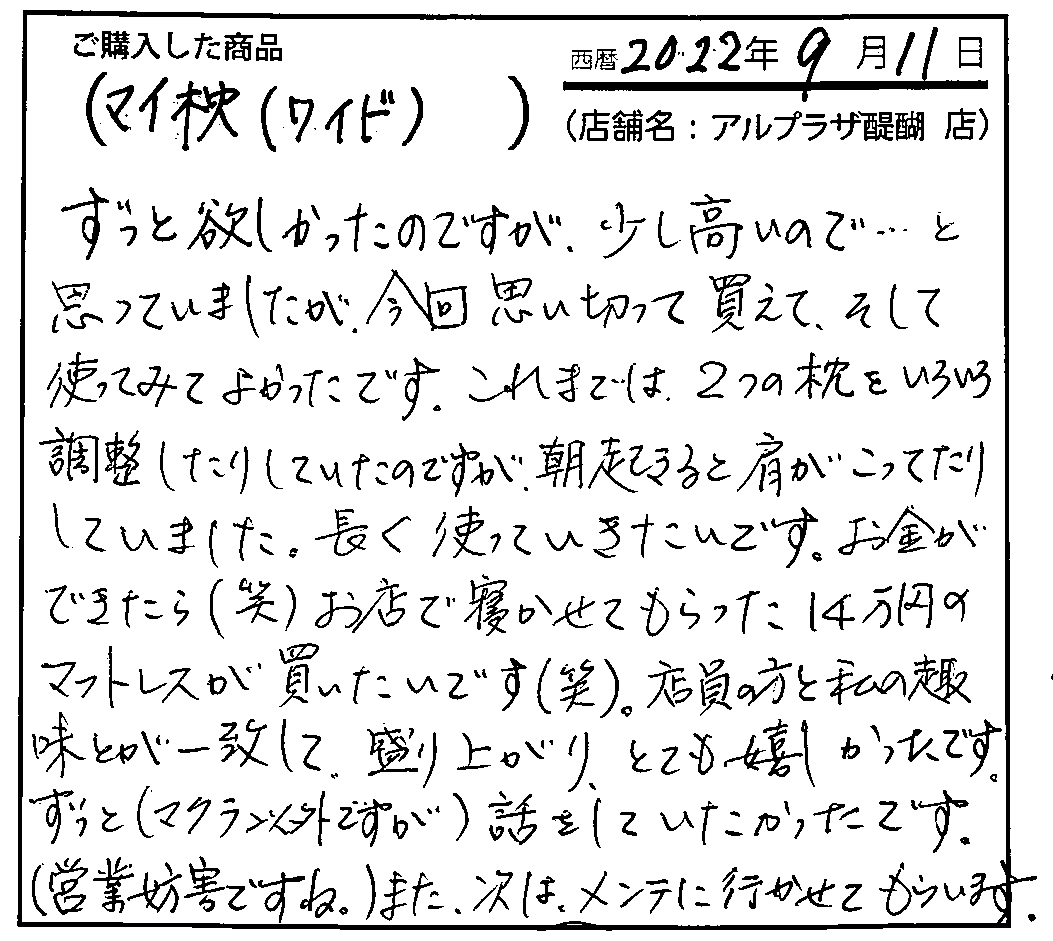 ご購入した商品
西暦2022年9月11日
(マイ枕(ワイド) )
(店舗名:アルプラザ醍醐 店)
ずっと欲しかったのですが、少し高いので…と
思っていましたが、今回思い切って買えて、そして
使ってみてよかったです。これまでは、2つの枕をいろいろ
調整したりしていたのですが、朝起きると肩がこってたり
していました。長く使っていきたいです。お金が
できたら(笑)お店で寝かせてもらった14万円の
マットレスが買いたいです(笑)。店員の方と私の趣
味とが一致して、盛り上がり、とても嬉しかったです。
ずっと(マクラ以外ですが)話をしていたかったです。
(営業妨害ですね。)また、次は、メンテに行かせてもらいます。